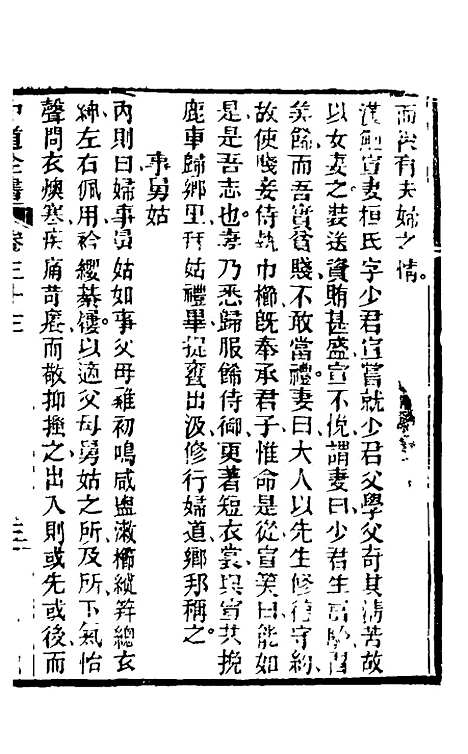 而後有夫婦之情。
漢鮑宣妻桓氏字少君宣嘗就少君父學父奇其清苦故
以女妻之裝送資賄甚盛宣不悅謂妻曰少君生富驕習
美飾而吾實貧賤不敢當禮。妻曰大人以先生修德守約
故使賤妾侍執巾櫛旣奉承君子惟命是從宣笑曰能如
是是吾志也。妻乃悉歸服飾侍御更著短衣裳與宣共挽
鹿車歸鄉里拜姑禮畢提甕出汲修行婦道鄉邦稱之。
事舅姑
內則曰婦事舅姑如事父母雞初鳴咸盥漱櫛縰筓總衣
紳左右佩用衿纓綦屨以適父母舅姑之所及所下氣怡
聲問衣燠寒疾痛苛癢而敬抑搔之出入則或先或後而
全書 卷三十三